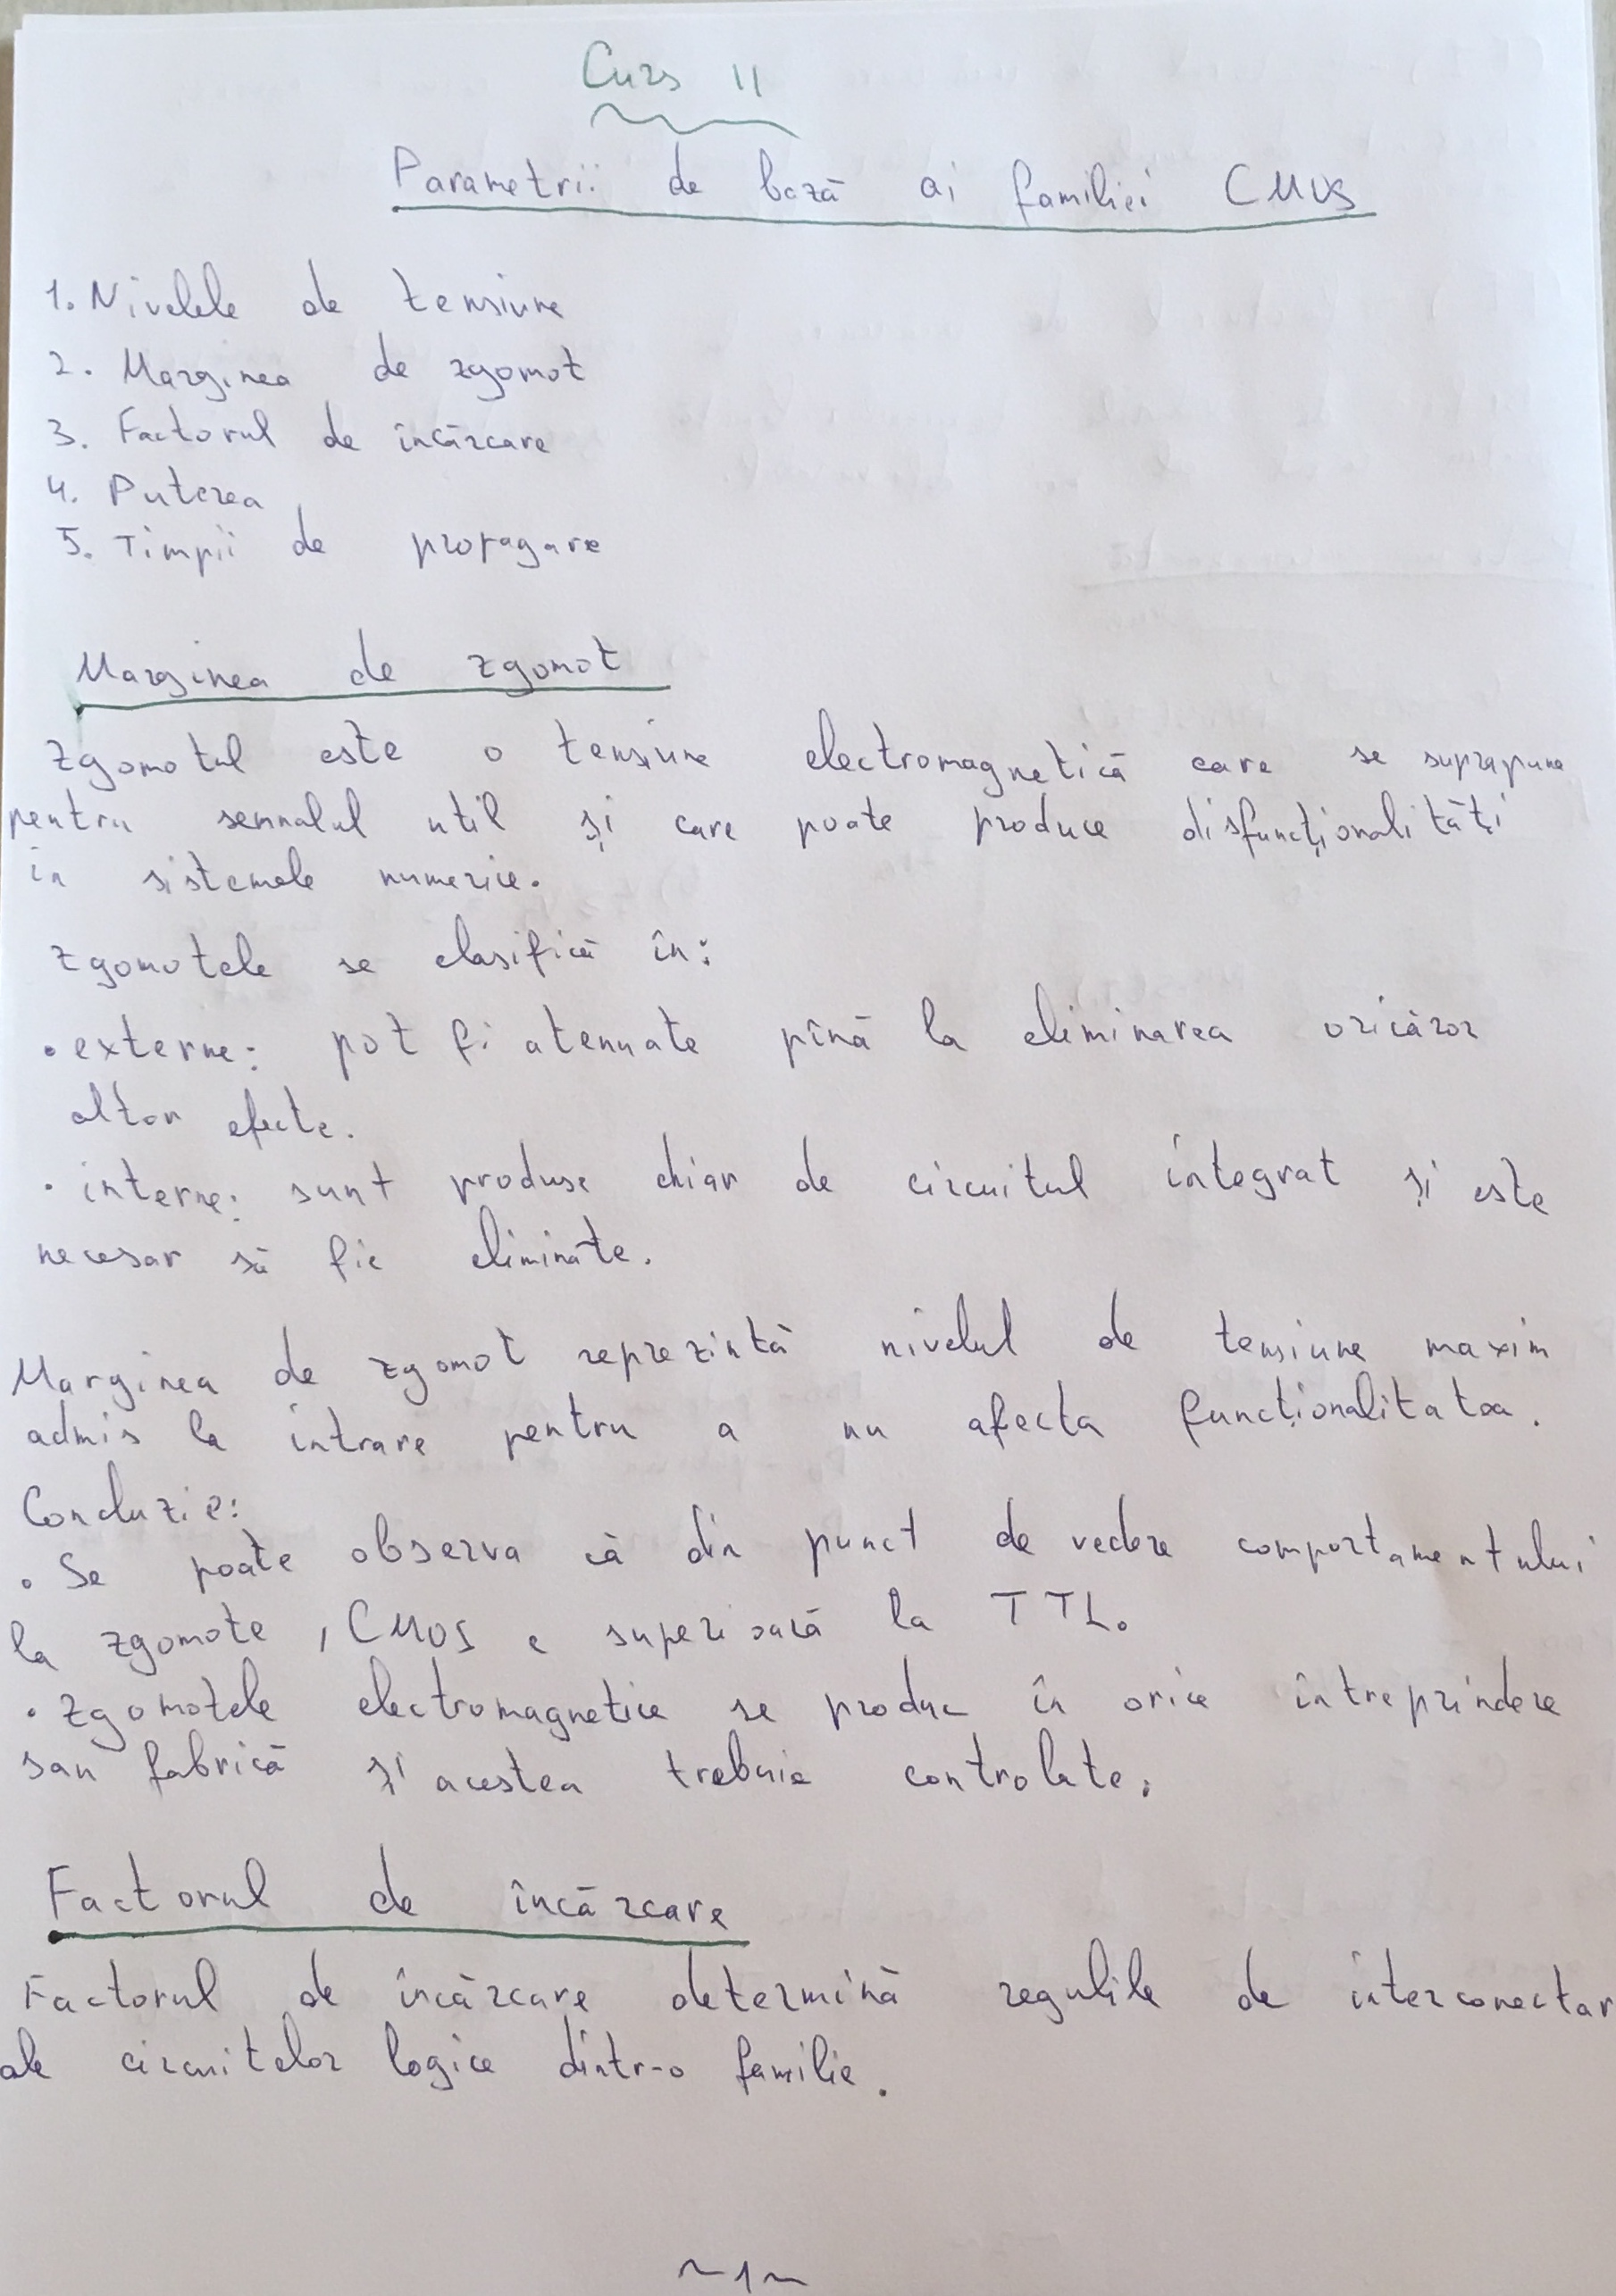 Curs II
Parametrii de bază ai familiei CMOS
1. Nivelele de tensiune
2. Marginea de zgomot
3. Factorul de încărcare
4. Puterea
5. Timpii de propagare
Marginea de zgomot
Zgomotul este o tensiune electromagnetică care se suprapune
pentru semnalul util și care poate produce disfuncționalități
în sistemele numerice.
Zgomotele se clasifică în:
• externe: pot fi atenuate pînă la eliminarea oricăror
altor efecte.
• interne: sunt produse chiar de circuitul integrat și este
necesar să fie eliminate.
Marginea de zgomot reprezintă nivelul de tensiune maxim
admis la intrare pentru a nu afecta funcționalitatea.
Concluzie:
• Se poate observa că din punct de vedere comportamentului
la zgomote, CMOS e superioară la TTL.
• Zgomotele electromagnetice se produc în orice întreprindere
sau fabrică și acestea trebuie controlate.
Factorul de încărcare
Factorul de încărcare determină regulile de interconectar
ale circuitelor logice dintr-o familie.
~1~